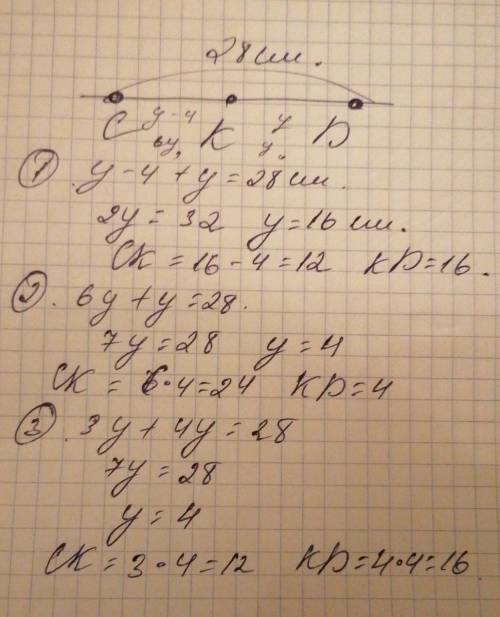 28 см.
y-4 y
C K D
6y y
① y-4+y=28 см.
2y=32 y=16 см.
CK=16-4=12 KD=16.
② 6y+y=28.
7y=28 y=4
CK=6·4=24 KD=4
③ 3y+4y=28
7y=28
y=4
CK=3·4=12 KD=4·4=16